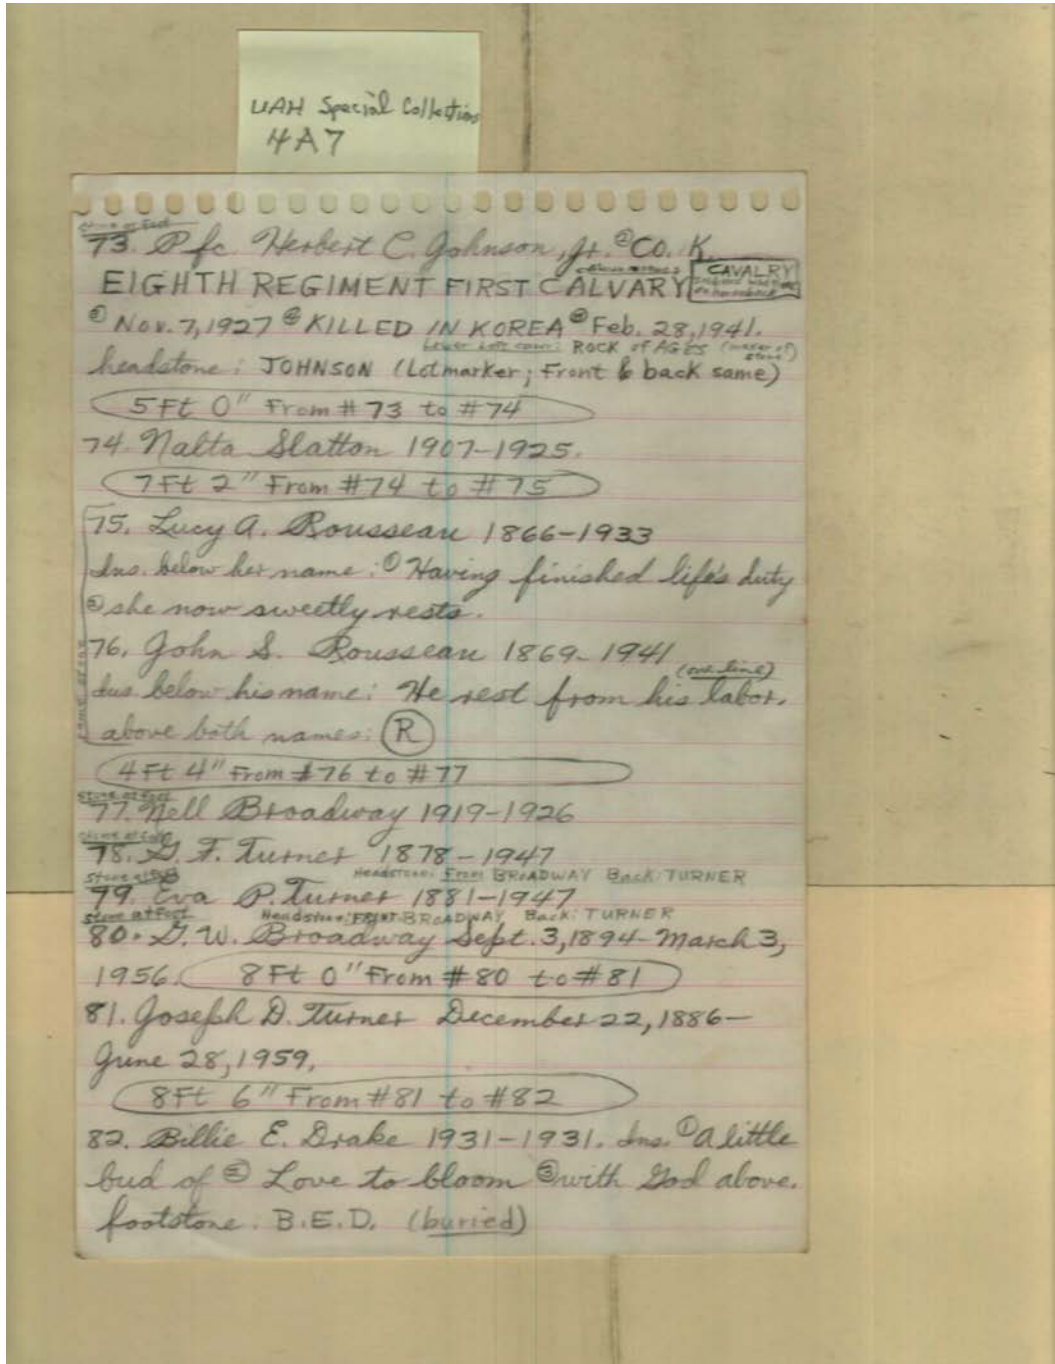 UAH Special Collection
4A7
Stone at Foot
73. Pfc. Herbert C. Johnson, Jr. ② CO. K.
EIGHTH REGIMENT FIRST CALVARY CAVALRY
③ Nov. 7, 1927 ④ KILLED IN KOREA ⑤ Feb. 28, 1941.
Lower Left corner: ROCK of AGES (maker of stone)
headstone: JOHNSON (Lotmarker; Front & back same)
5Ft 0" From #73 to #74
74. Nalta Slatton 1907-1925.
7Ft 2" From #74 to #75
75. Lucy A. Rousseau 1866-1933
Ins. below her name: ① Having finished life's duty
② she now sweetly rests.
76. John S. Rousseau 1869-1941
(one line)
Ins. below his name: He rest from his labor.
above both names: R
same stone
4Ft 4" From #76 to #77
Stone at Foot
77. Nell Broadway 1919-1926
Stone at Foot
78. G. F. Turner 1878-1947
Headstone: Front BROADWAY Back: TURNER
Stone at Foot
79. Eva P. Turner 1881-1947
Headstone: FRONT BROADWAY Back: TURNER
Stone at Foot
80. G. W. Broadway Sept. 3, 1894-March 3,
1956. 8Ft 0" From #80 to #81
81. Joseph D. Turner December 22, 1886-
June 28, 1959.
8Ft 6" From #81 to #82
82. Billie E. Drake 1931-1931. Ins. ① A little
bud of ② Love to bloom ③ with God above.
footstone: B.E.D. (buried)